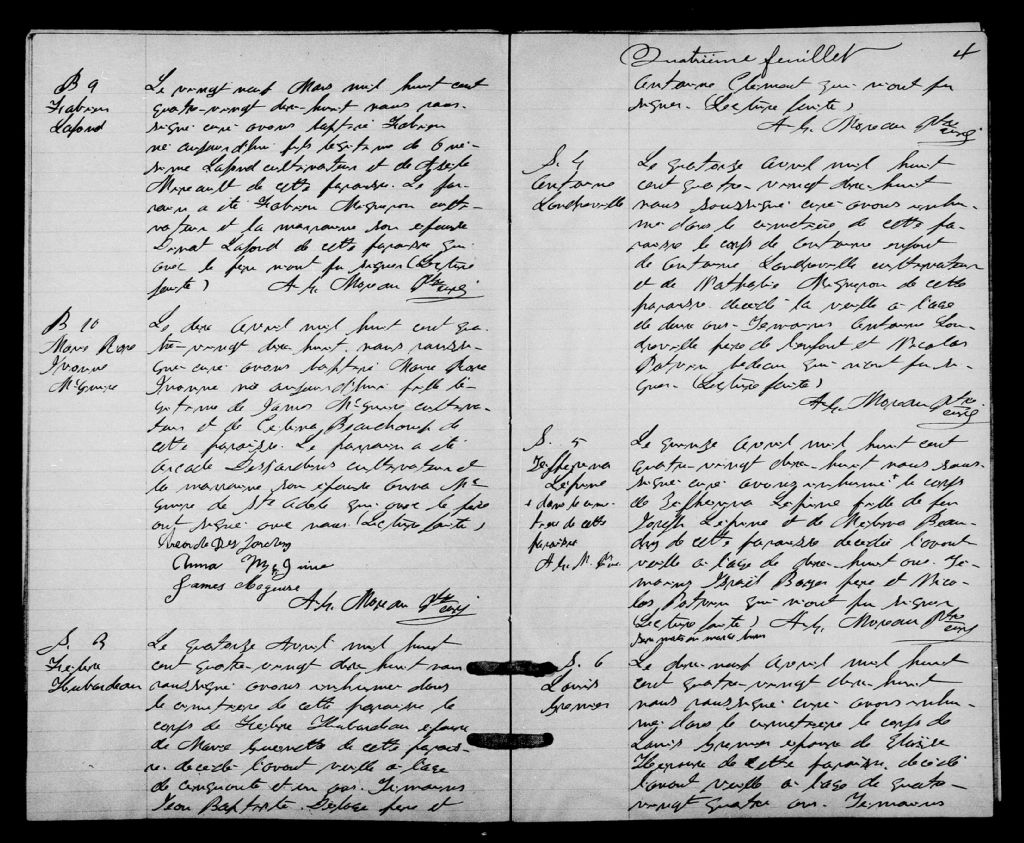 B 9
Fabien
Lafond
Le vingt neuf Mars mil huit cent
quatre-vingt dix-huit nous sous-
signé curé avons baptisé Fabien
né aujourd'hui fils légitime de
Lafond cultivateur et de
de cette paroisse. Le par-
rain a été Fabien Migneron culti-
vateur et la marraine son épouse
Lafond de cette paroisse qui
avec le père n'ont pu signer (Lecture
faite) A. H. Moreau Ptre
curé
B 10
Marie Rose
Yvonne
McGuire
Le dix Avril mil huit cent qua-
tre-vingt dix-huit. nous soussi-
gné curé avons baptisé Marie Rose
Yvonne née aujourd'hui fille lé-
gitime de James McGuire cultiva-
teur et de Celina Beauchamp de
cette paroisse. Le parrain a été
Arcade Desjardins cultivateur et
la marraine son épouse Anna Mc
Guire de Ste Adèle qui avec le père
ont signé avec nous (Lecture faite)
Arcade Des Jardins
Anna McGuire
James Maguire
A. H. Moreau Ptre
curé
S. 3
Hubardeau
Le quatorze Avril mil huit
cent quatre-vingt dix-huit nous
soussigné avons inhumé dans
le cimetière de cette paroisse le
corps de Hubardeau époux
de Marie Guenette de cette parois-
se. décédé l'avant veille à l'age
de cinquante et un ans. Témoins
Jean Baptiste père et
Quatrième feuillet 4
Antoine Clément qui n'ont pu
signer. (Lecture faite)
A. H. Moreau Ptre
curé
S. 4
Antoine
Landreville
Le quatorze Avril mil huit
cent quatre-vingt dix-huit
nous soussigné curé avons inhu-
mé dans le cimetière de cette pa-
roisse le corps de Antoine enfant
de Antoine Landreville cultivateur
et de Nathalie Migneron de cette
paroisse décédé la veille à l'age
de deux ans. Témoins Antoine Lan-
dreville père de l'enfant et Nicolas
Potvin bedeau qui n'ont pu si-
gner. (Lecture faite)
A. H. Moreau Ptre
curé
S. 5
Zephirina
Lépine
+ dans le cime-
tière de cette
paroisse
A. H. M. Ptre
Le quinze Avril mil huit cent
quatre-vingt dix-huit nous sous-
signé curé avons inhumé + le corps
de Zephirina Lépine fille de feu
Joseph Lépine et de Melina Beau-
de cette paroisse décédée l'avant
veille à l'age de dix-huit ans. Té-
moins Israël père et Nico-
las Potvin qui n'ont pu signer
(Lecture faite) A. H. Moreau Ptre
curé
S. 6
Louis
Grenier
Le dix-neuf Avril mil huit
cent quatre-vingt dix-huit
nous soussigné curé avons inhu-
mé dans le cimetière le corps de
Louis Grenier époux de Eloïse
de cette paroisse. décédé
l'avant veille à l'age de quatre-
vingt quatre ans. Témoins